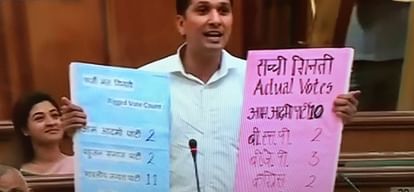 फर्जी मत गिनती
Rigged Vote Count
आम आदमी पार्टी 2
बहुजन समाज पार्टी 2
भारतीय जनता पार्टी 11
सच्ची गिनती
Actual Votes
आम आदमी पार्टी 10
बी.एस.पी. 2
बी.जे.पी. 3
कांग्रेस 2